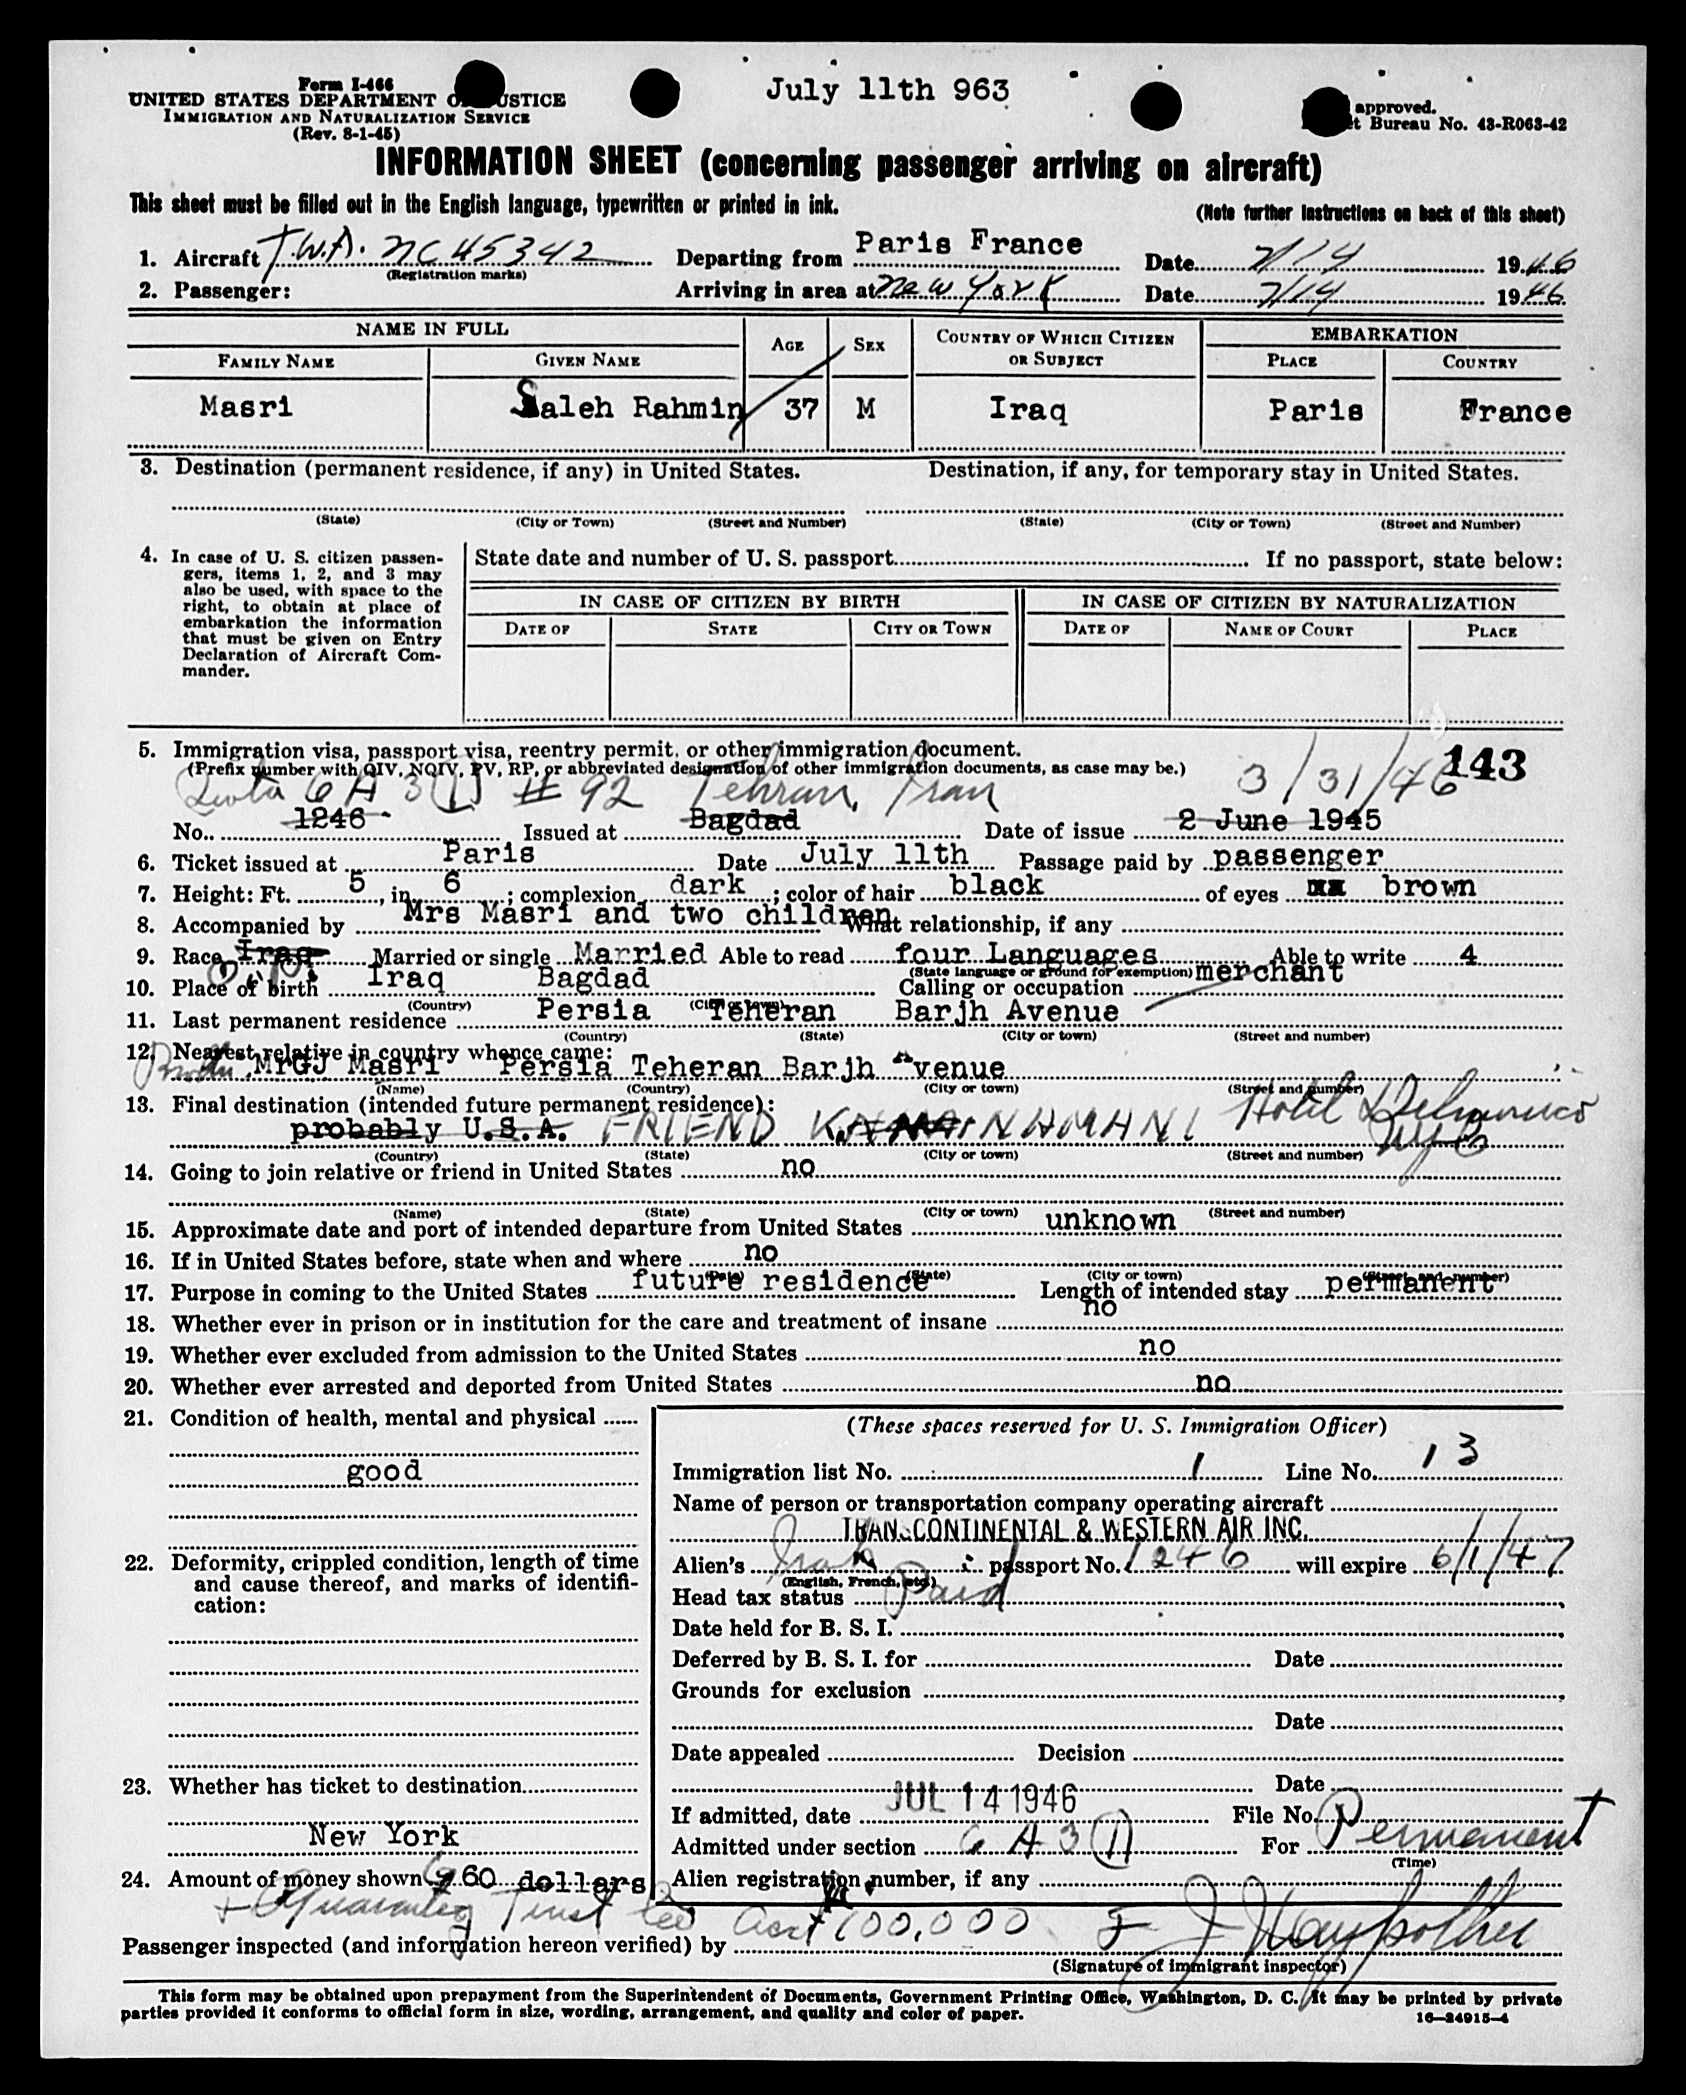 July 11th 963
Form I-466
UNITED STATES DEPARTMENT OF JUSTICE
IMMIGRATION AND NATURALIZATION SERVICE
(Rev. 8-1-45)
approved.
Bureau No. 43-R063-42
INFORMATION SHEET (concerning passenger arriving on aircraft)
This sheet must be filled out in the English language, typewritten or printed in ink.
(Note further instructions on back of this sheet)
1. Aircraft T.W.A. NC 45342 Departing from Paris France Date 7/14 1946
(Registration marks)
2. Passenger: Arriving in area at New York Date 7/14 1946
NAME IN FULL AGE SEX COUNTRY OF WHICH CITIZEN OR SUBJECT EMBARKATION
FAMILY NAME GIVEN NAME PLACE COUNTRY
Masri Saleh Rahmin 37 M Iraq Paris France
3. Destination (permanent residence, if any) in United States. Destination, if any, for temporary stay in United States.
(State) (City or Town) (Street and Number) (State) (City or Town) (Street and Number)
4. In case of U. S. citizen passen-
gers, items 1, 2, and 3 may
also be used, with space to the
right, to obtain at place of
embarkation the information
that must be given on Entry
Declaration of Aircraft Com-
mander.
State date and number of U. S. passport If no passport, state below:
IN CASE OF CITIZEN BY BIRTH IN CASE OF CITIZEN BY NATURALIZATION
DATE OF STATE CITY OR TOWN DATE OF NAME OF COURT PLACE
5. Immigration visa, passport visa, reentry permit, or other immigration document.
(Prefix number with QIV, NQIV, PV, RP, or abbreviated designation of other immigration documents, as case may be.)
143
Quota 6 A 3 (1) # 92 Tehran, Iran 3/31/46
No. 1246 Issued at Bagdad Date of issue 2 June 1945
6. Ticket issued at Paris Date July 11th Passage paid by passenger
7. Height: Ft. 5, in. 6; complexion dark; color of hair black of eyes xx brown
8. Accompanied by Mrs Masri and two children What relationship, if any
9. Race Iraq Married or single Married Able to read four Languages Able to write 4
(State language or ground for exemption)
10. Place of birth Iraq Bagdad Calling or occupation merchant
(Country) (City or town)
11. Last permanent residence Persia Teheran Barjh Avenue
(Country) (State) (City or town) (Street and number)
12. Nearest relative in country whence came:
MrGJ Masri Persia Teheran Barjh Avenue
(Name) (Country) (City or town) (Street and number)
13. Final destination (intended future permanent residence):
probably U.S.A. FRIEND K. NAMANI Hotel Delmonico NYC
(Country) (State) (City or town) (Street and number)
14. Going to join relative or friend in United States no
(Name) (State) (City or town) (Street and number)
15. Approximate date and port of intended departure from United States unknown
16. If in United States before, state when and where no
(Date) (State) (City or town) (Street and number)
17. Purpose in coming to the United States future residence Length of intended stay permanent
18. Whether ever in prison or in institution for the care and treatment of insane no
19. Whether ever excluded from admission to the United States no
20. Whether ever arrested and deported from United States no
21. Condition of health, mental and physical
good
22. Deformity, crippled condition, length of time
and cause thereof, and marks of identifi-
cation:
23. Whether has ticket to destination
New York
24. Amount of money shown 60 dollars
+ Guaranty Trust Co acct 100,000
(These spaces reserved for U. S. Immigration Officer)
Immigration list No. 1 Line No. 13
Name of person or transportation company operating aircraft
TRANSCONTINENTAL & WESTERN AIR INC.
Alien's Iraq passport No. 1246 will expire 6/1/47
(English, French, etc.)
Head tax status Paid
Date held for B. S. I.
Deferred by B. S. I. for Date
Grounds for exclusion
Date
Date appealed Decision
Date
If admitted, date JUL 14 1946 File No.
Admitted under section 6 A 3 (1) For Permanent
(Time)
Alien registration number, if any
Passenger inspected (and information hereon verified) by
(Signature of immigrant inspector)
This form may be obtained upon prepayment from the Superintendent of Documents, Government Printing Office, Washington, D. C. It may be printed by private
parties provided it conforms to official form in size, wording, arrangement, and quality and color of paper.
16—24915-4